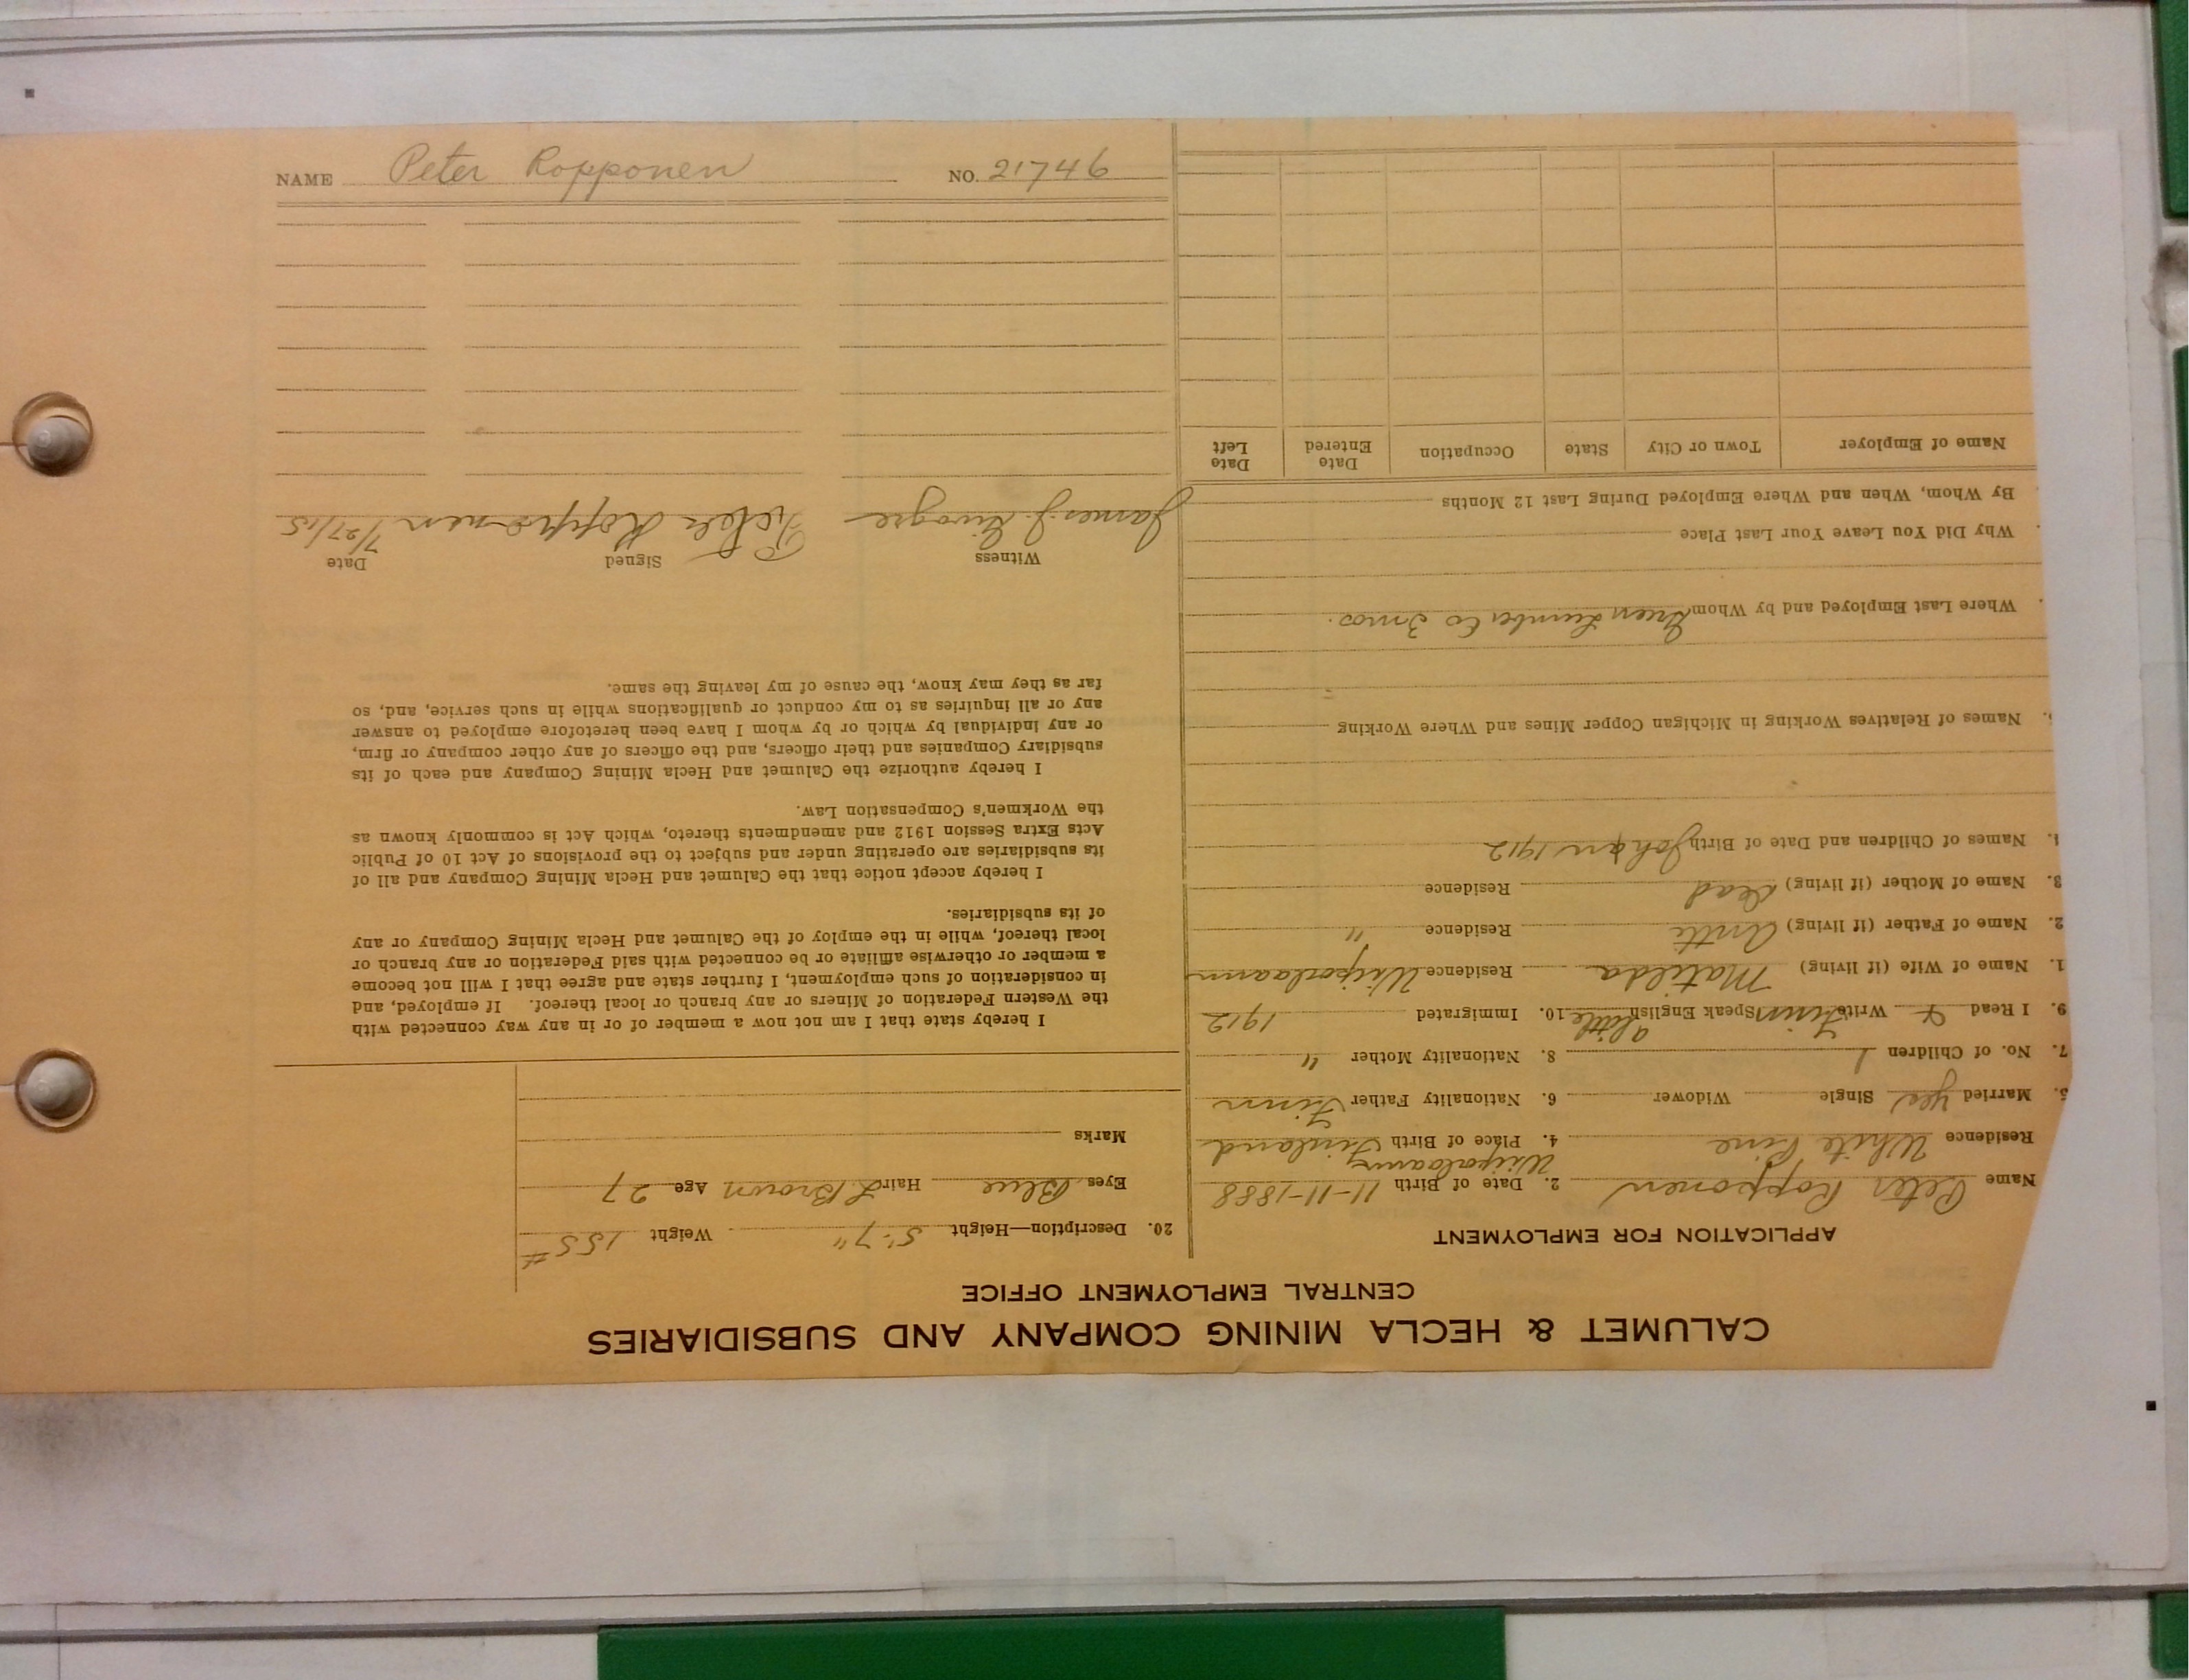 NAME Peter Ropponen NO. 21746
CALUMET & HECLA MINING COMPANY AND SUBSIDIARIES
CENTRAL EMPLOYMENT OFFICE
APPLICATION FOR EMPLOYMENT
Name Peter Ropponen 2. Date of Birth 11-11-1888
Residence White Pine 4. Place of Birth Wiipolaann Finland
5. Married yes Single Widower 6. Nationality Father Finn
7. No. of Children 1 8. Nationality Mother "
9. I Read & Write Finn Speak English a little 10. Immigrated 1912
1. Name of Wife (if living) Matilda Residence Wiipolaann
2. Name of Father (if living) Antti Residence "
3. Name of Mother (if living) Dead Residence
4. Names of Children and Date of Birth Johan 1912
Names of Relatives Working in Michigan Copper Mines and Where Working
Where Last Employed and by Whom Green Lumber Co 3 mos.
Why Did You Leave Your Last Place
By Whom, When and Where Employed During Last 12 Months
Name of Employer Town or City State Occupation Date Entered Date Left
20. Description—Height 5'-7" Weight 155#
Eyes Blue Hair L Brown Age 27
Marks
I hereby state that I am not now a member of or in any way connected with
the Western Federation of Miners or any branch or local thereof. If employed, and
in consideration of such employment, I further state and agree that I will not become
a member or otherwise affiliate or be connected with said Federation or any branch or
local thereof, while in the employ of the Calumet and Hecla Mining Company or any
of its subsidiaries.
I hereby accept notice that the Calumet and Hecla Mining Company and all of
its subsidiaries are operating under and subject to the provisions of Act 10 of Public
Acts Extra Session 1912 and amendments thereto, which Act is commonly known as
the Workmen's Compensation Law.
I hereby authorize the Calumet and Hecla Mining Company and each of its
subsidiary Companies and their officers, and the officers of any other company or firm,
or any individual by which or by whom I have been heretofore employed to answer
any or all inquiries as to my conduct or qualifications while in such service, and, so
far as they may know, the cause of my leaving the same.
Witness Signed Date
James J. Peter Ropponen 7/27/15